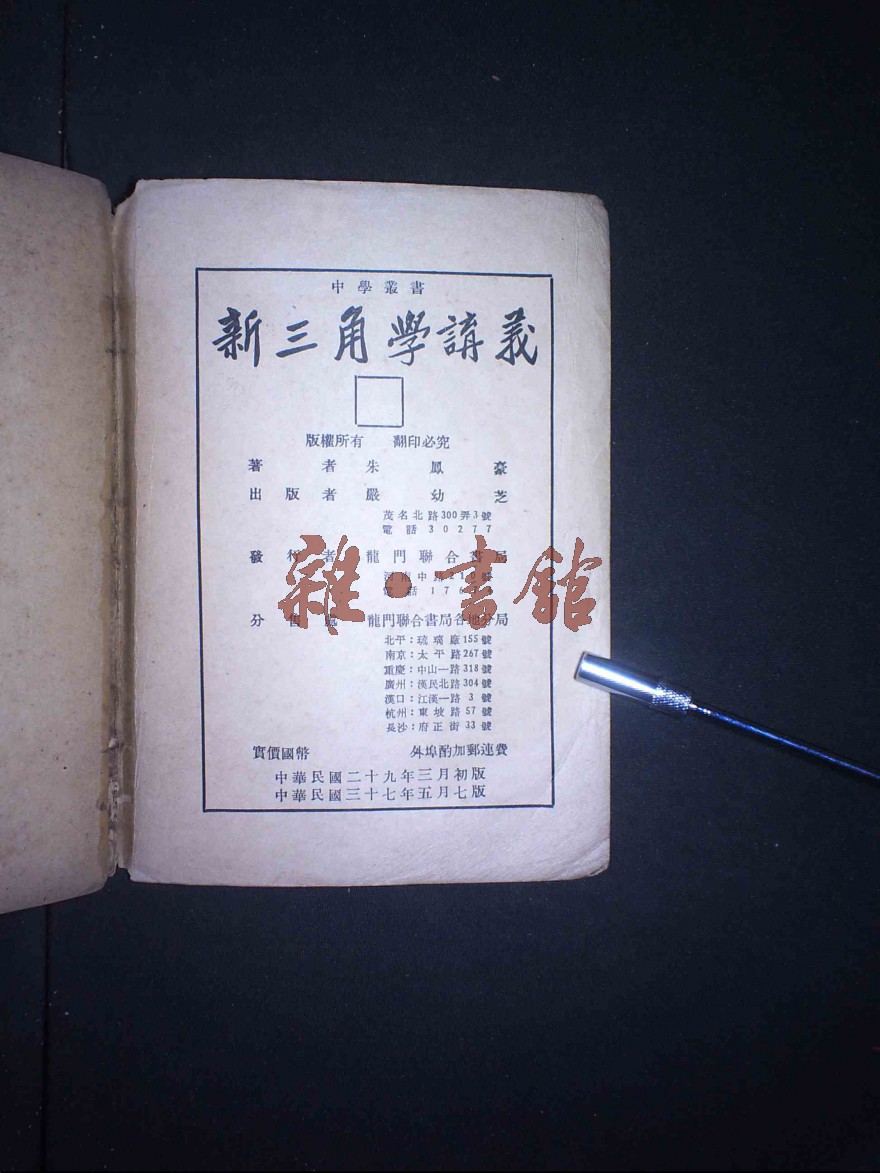 中學叢書
新三角學講義
版權所有 翻印必究
著者 朱鳳豪
出版者 嚴幼芝
茂名北路300弄3號
電話30277
發行者 龍門聯合書局
河南中路210號
電話176
分售處 龍門聯合書局各地分局
北平：琉璃廠155號
南京：太平路267號
重慶：中山一路318號
廣州：漢民北路304號
漢口：江漢一路3號
杭州：東坡路57號
長沙：府正街33號
實價國幣 外埠酌加郵運費
中華民國二十九年三月初版
中華民國三十七年五月七版
雜·書館